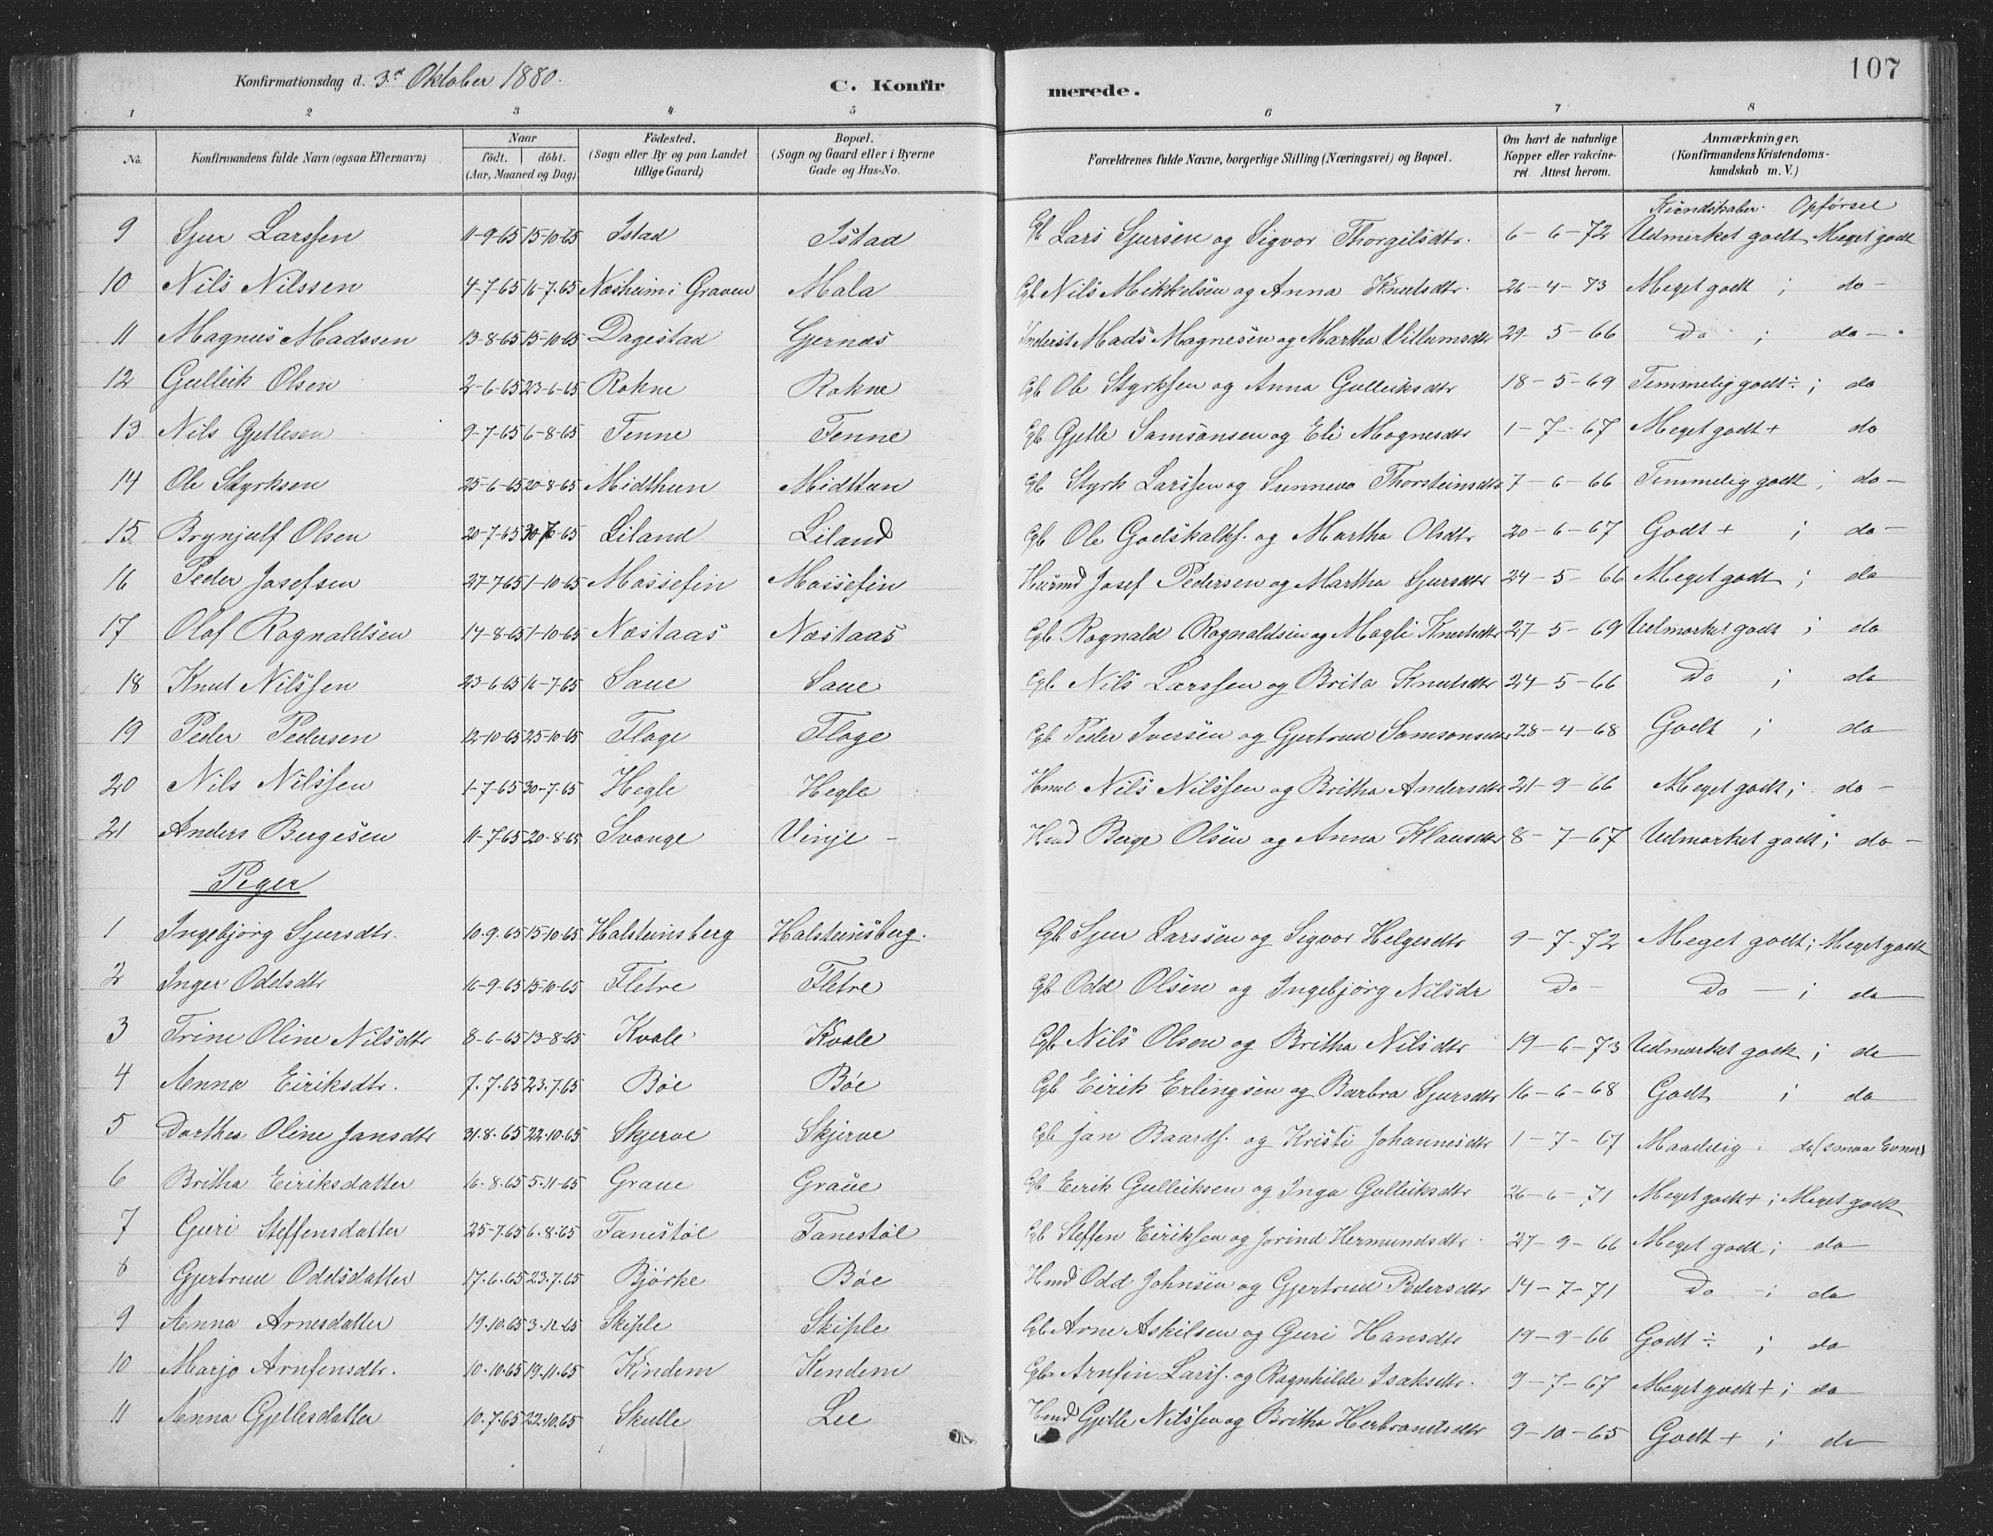 107
Konfirmationsdag d. 3die Oktober 1880.
C. Konfirmerede.
1 2 3 4 5 6 7 8
No. | Konfirmandens fulde Navn (ogsaa Efternavn) | Naar født. døbt. (Aar, Maaned og Dag) | Fødested. (Sogn eller By og paa Landet tillige Gaard) | Bopæl. (Sogn og Gaard eller i Byerne Gade og Hus-No. | Forældrenes fulde Navne, borgerlige Stilling (Næringsvei) og Bopæl. | Om havt de naturlige Kopper eller vakcineret. Attest herom. | Anmærkninger, (Konfirmandens Kristendomskundskab m. V.)
Kundskaber Opførsel
9 Sjur Larssen 11-9-65 15-10-65 Istad Istad Gb Lars Sjursen og Sigvor Thorgilsdtr. 6-6-72 Udmerket godt Meget godt
10 Nils Nilssen 4-7-65 16-7-65 Næsheim i Graven Mala Gb Nils Mikkelsen og Anna Knutsdtr. 26-4-73 Meget godt ; do-
11 Magnus Madssen 13-8-65 15-10-65 Dagestad Gjernæs Inderst Mads Magnesen og Martha Villumsdtr 29-5-66 Do ; do-
12 Gulleik Olsen 2-6-65 23-6-65 Rokne Rokne Gb Ole Styrksen og Anna Gulleiksdtr 18-5-69 Temmelig godt÷; do
13 Nils Gjetlesen 9-7-65 6-8-65 Tenne Tenne Gb Gjetle Samsonsen og Eli Magnesdtr 1-7-67 Meget godt+ do
14 Ole Styrksen 25-6-65 20-8-65 Midthun Midthun Gb Styrk Larssen og Sunneva Thorsteinsdtr 7-6-66 Temmelig godt ; do-
15 Brynjulf Olsen 20-7-65 30-7-65 Liland Liland Gb Ole Godskalks. og Martha Olsdtr 20-6-67 Godt + ; do-
16 Peder Josefsen 27-7-65 1-10-65 Mossefin Mossefin Husmd Josef Pedersen og Martha Sjursdtr 24-5-66 Meget godt ; do
17 Olaf Rognaldsen 14-8-65 1-10-65 Næstaas Næstaas Gb Rognald Rognaldsen og Magli Knutsdtr 27-5-69 Udmærket godt ; do
18 Knut Nilssen 23-6-65 16-7-65 Saue Saue Gb Nils Larssen og Brita Knutsdtr 24-5-66 Do ; do
19 Peder Pedersen 12-10-65 25-10-65 Flage Flage Gb Peder Iversen og Gjertrud Samsonsdtr 28-4-68 Godt ; do
20 Nils Nilssen 1-7-65 30-7-65 Hegle Hegle Hmd Nils Nilssen og Britha Andersdtr 21-9-66 Meget godt ; do-
21 Anders Bergesen 11-7-65 20-8-65 Svange Vinje - Hmd Berge Olsen og Anna Klausdtr 8-7-67 Udmærket godt ; do-
Piger
1 Ingebjørg Sjursdtr. 10.9.65 15-10-65 Halsteinsberg Halsteinsberg. Gb Sjur Larssen og Sigvor Helgesdtr 9-7-72 Meget godt ; Meget godt
2 Inger Oddsdtr 16-9-65 15-10-65 Fletre Fletre Gb Odd Olsen og Ingebjørg Nilsdr Do- Do - ; do
3 Trine Oline Nilsdtr 8-6-65 13-8-65 Kvale Kvale Gb Nils Olsen og Britha Nilsdtr 19-6-73 Udmærket godt ; do
4 Anna Eiriksdtr. 7.7.65 23.7.65 Bøe Bøe Gb Eirik Erlingsen og Barbra Sjursdtr 16-6-68 Godt ; do
5 Dorthea Oline Jansdtr 31.8.65 22.10.65 Skjerve Skjerve Gb Jan Baards. og Kristi Johannesdtr 1-7-67 Maadelig . do (smaa Evner)
6 Britha Eiriksdatter 16.8.65 5.11-65 Graue Graue Gb Eirik Gulleiksen og Inga Gulleiksdtr 26-6-71 Meget godt+ ; Meget godt
7 Guri Steffensdatter 25-7.65 6.8.65 Fanestøl Fanestøl Gb Steffen Eiriksen og Jorind Hermundsdtr 27-9-66 Meget godt ; do
8 Gjertrud Oddsdatter 17.6.65 23.7.65 Bjørke Bøe Hmd Odd Johnsen og Gjertrud Pedersdtr 14-7-71 Do - ; do
9 Anna Arnesdatter 19.10.65 3.12.65 Skiple Skiple Gb Arne Askilsen og Guri Hansdtr 19-9-66 Godt ÷ ; do
10 Marjo Arnfensdtr. 10.10.65 19.11.65 Kindem Kendem Gb Arnfin Larss. og Ragnhilde Isaksdtr. 9-7-67 Meget godt + ; do
11 Anna Gjetlesdatter 10.7.65 22.10.65 Skutle Lee Hmd Gjetle Nilssen og Britha Herbrandsdtr 9-10-65 Godt + ; do